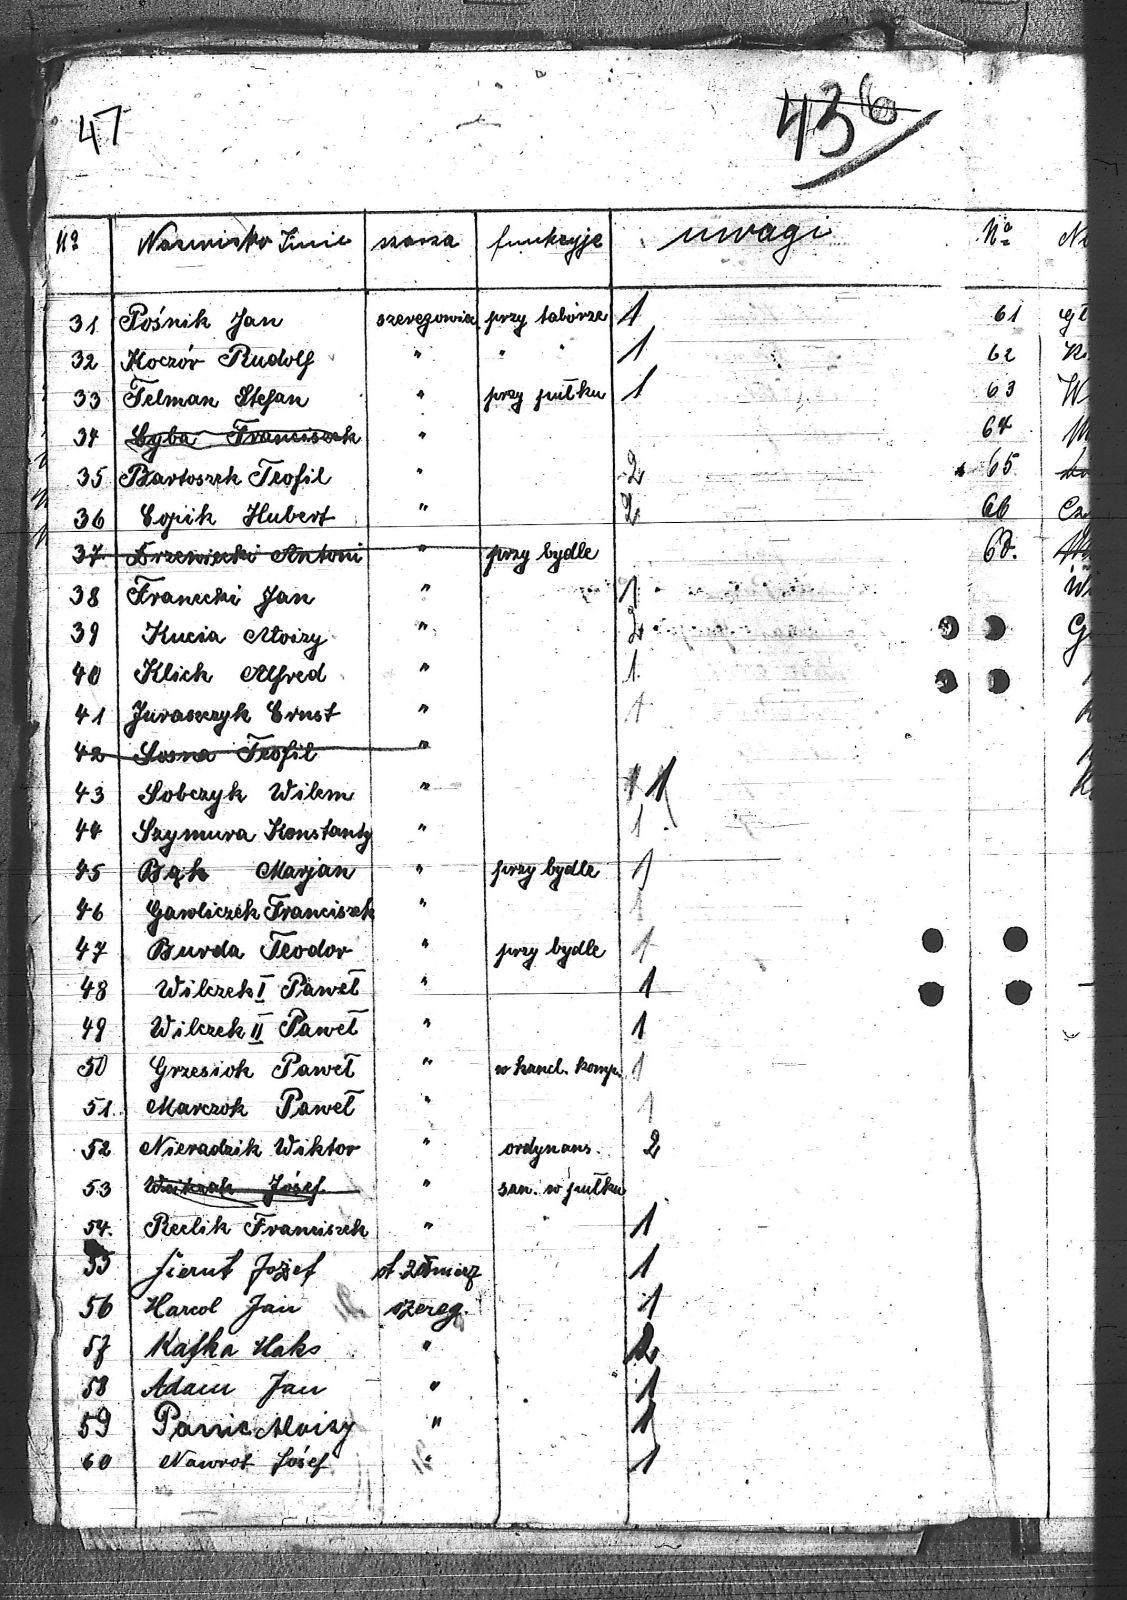 47
436
No Nazwisko Imie szarża funkcyje uwagi No
31 Pośnik Jan szeregowiec przy taborze 1 61
32 Koczór Rudolf " " " 1 62
33 Telman Stefan " przy pułku 1 63
34 Cyba Franciszek " 64
35 Bartoszek Teofil " 2 65
36 Hubert " 2 66
37 Brzewiecki Antoni " przy bydle
38 Franecki Jan " 1
39 Kucia Aloizy " 2
40 Klich Alfred " 1
41 Juraszczyk Ernst " 1
42 Sosna Teofil "
43 Sobczyk Wilem " 1 1
44 Szymura Konstanty " 1
45 Bąk Marjan " przy bydle 1
46 Gawliczek Franciszek " 1
47 Burda Teodor " przy bydle 1
48 Wilczek I Paweł " 1
49 Wilczek II Paweł " 1
50 Grzesiok Paweł " w kancl. komp. 1
51. Marczok Paweł " 1
52 Nieradzik Wiktor " ordynans. 2
53 Józef " san. w pułku
54. Reclik Franciszek " 1
55 Józef st. żołnierz 1
56 Harcol Jan szereg. 1
57 Kafka Haks " 2
58 Adam Jan " 1
59 Panic Aloizy " 1
60 Nawrot Józef " 1